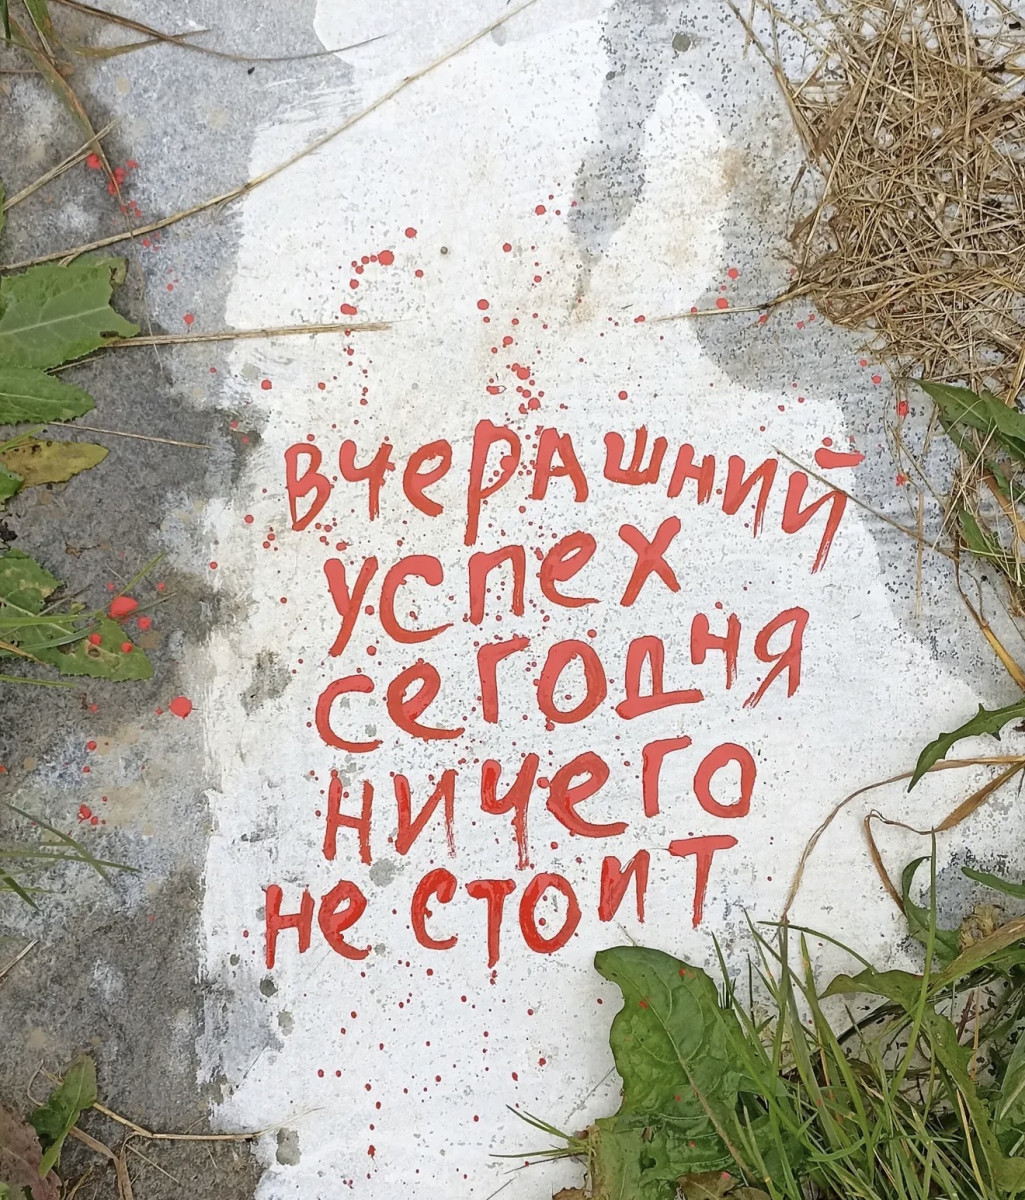 вчерашний
успех
сегодня
ничего
не стоит